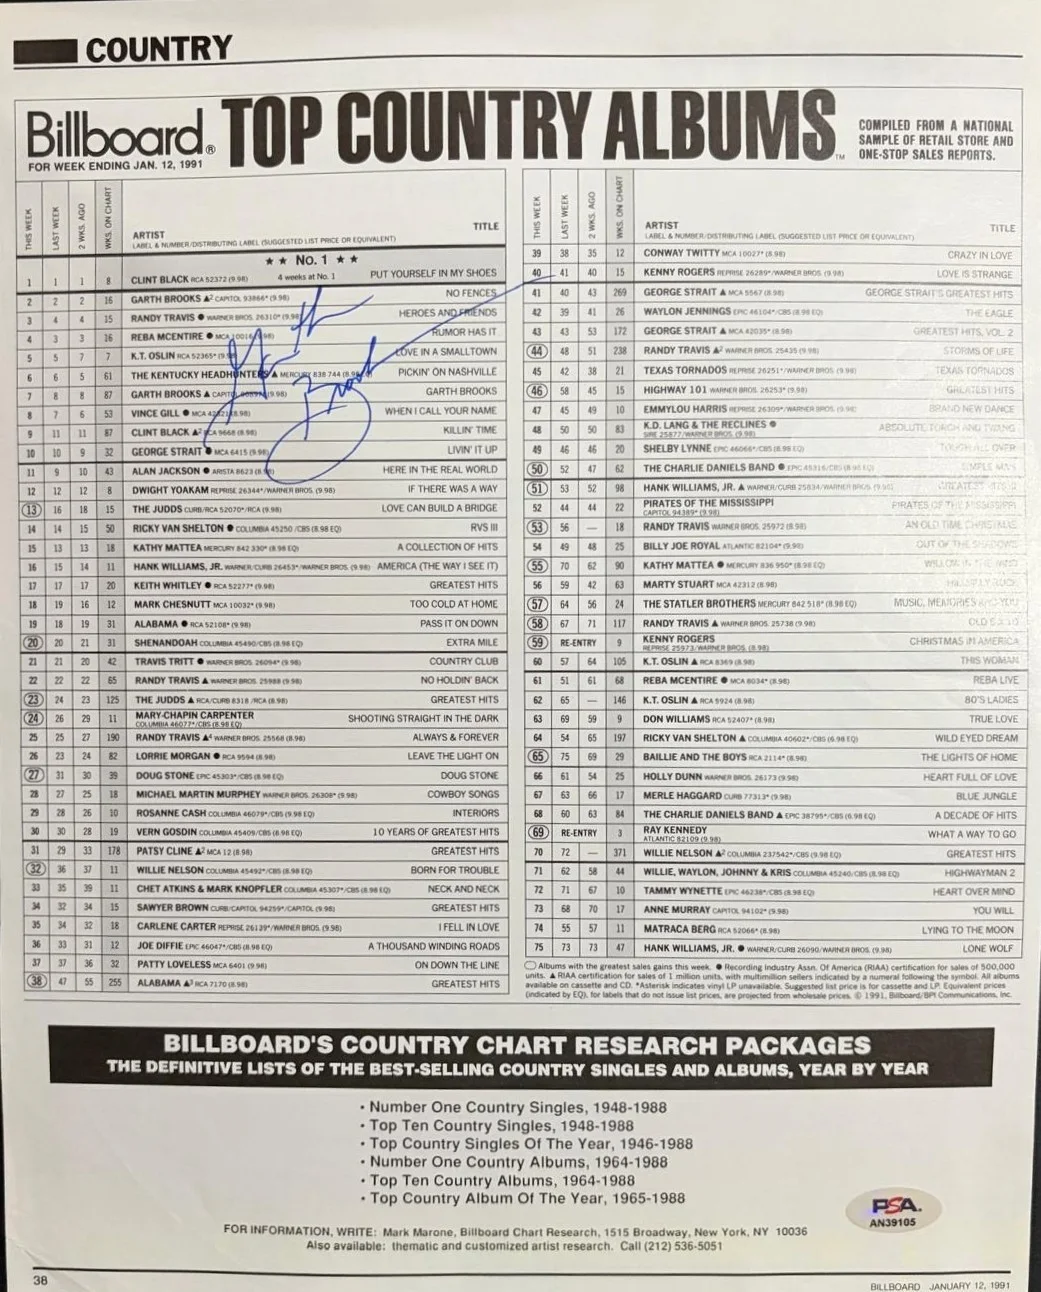 COUNTRY
Billboard® TOP COUNTRY ALBUMS™
FOR WEEK ENDING JAN. 12, 1991
COMPILED FROM A NATIONAL
SAMPLE OF RETAIL STORE AND
ONE-STOP SALES REPORTS.
THIS WEEK LAST WEEK 2 WKS. AGO WKS. ON CHART ARTIST TITLE
LABEL & NUMBER/DISTRIBUTING LABEL (SUGGESTED LIST PRICE OR EQUIVALENT)
★ ★ No. 1 ★ ★
1 1 1 8 CLINT BLACK RCA 52372 (9.98) 4 weeks at No. 1 PUT YOURSELF IN MY SHOES
2 2 2 16 GARTH BROOKS ▲² CAPITOL 93866* (9.98) NO FENCES
3 4 4 15 RANDY TRAVIS ● WARNER BROS. 26310* (9.98) HEROES AND FRIENDS
4 3 3 16 REBA MCENTIRE ● MCA 10016 (9.98) RUMOR HAS IT
5 5 7 7 K.T. OSLIN RCA 52365* (9.98) LOVE IN A SMALLTOWN
6 6 5 61 THE KENTUCKY HEADHUNTERS ▲ MERCURY 838 744 (8.98 EQ) PICKIN' ON NASHVILLE
7 8 8 87 GARTH BROOKS ▲ CAPITOL (9.98) GARTH BROOKS
8 7 6 53 VINCE GILL ● MCA 42321 (8.98) WHEN I CALL YOUR NAME
9 11 11 87 CLINT BLACK ▲² RCA 9668 (8.98) KILLIN' TIME
10 10 9 32 GEORGE STRAIT ● MCA 6415 (9.98) LIVIN' IT UP
11 9 10 43 ALAN JACKSON ● ARISTA 8623 (8.98) HERE IN THE REAL WORLD
12 12 12 8 DWIGHT YOAKAM REPRISE 26344*/WARNER BROS. (9.98) IF THERE WAS A WAY
13 16 18 15 THE JUDDS CURB/RCA 52070*/RCA (9.98) LOVE CAN BUILD A BRIDGE
14 14 15 50 RICKY VAN SHELTON ● COLUMBIA 45250/CBS (8.98 EQ) RVS III
15 13 13 18 KATHY MATTEA MERCURY 842 330* (8.98 EQ) A COLLECTION OF HITS
16 15 14 11 HANK WILLIAMS, JR. WARNER/CURB 26453*/WARNER BROS. (9.98) AMERICA (THE WAY I SEE IT)
17 17 17 20 KEITH WHITLEY ● RCA 52277* (9.98) GREATEST HITS
18 19 16 12 MARK CHESNUTT MCA 10032* (9.98) TOO COLD AT HOME
19 18 19 31 ALABAMA ● RCA 52108* (9.98) PASS IT ON DOWN
20 20 21 31 SHENANDOAH COLUMBIA 45490/CBS (8.98 EQ) EXTRA MILE
21 21 20 42 TRAVIS TRITT ● WARNER BROS. 26094* (9.98) COUNTRY CLUB
22 22 22 65 RANDY TRAVIS ▲ WARNER BROS. 25988 (9.98) NO HOLDIN' BACK
23 24 23 125 THE JUDDS ▲ RCA/CURB 8318 /RCA (8.98) GREATEST HITS
24 26 29 11 MARY-CHAPIN CARPENTER SHOOTING STRAIGHT IN THE DARK
COLUMBIA 46077*/CBS (8.98 EQ)
25 25 27 190 RANDY TRAVIS ▲⁴ WARNER BROS. 25568 (8.98) ALWAYS & FOREVER
26 23 24 82 LORRIE MORGAN ● RCA 9594 (8.98) LEAVE THE LIGHT ON
27 31 30 39 DOUG STONE EPIC 45303*/CBS (8.98 EQ) DOUG STONE
28 27 25 18 MICHAEL MARTIN MURPHEY WARNER BROS. 26308* (9.98) COWBOY SONGS
29 28 26 10 ROSANNE CASH COLUMBIA 46079*/CBS (9.98 EQ) INTERIORS
30 30 28 19 VERN GOSDIN COLUMBIA 45409/CBS (8.98 EQ) 10 YEARS OF GREATEST HITS
31 29 33 178 PATSY CLINE ▲² MCA 12 (8.98) GREATEST HITS
32 36 37 11 WILLIE NELSON COLUMBIA 45492*/CBS (8.98 EQ) BORN FOR TROUBLE
33 35 39 11 CHET ATKINS & MARK KNOPFLER COLUMBIA 45307*/CBS (8.98 EQ) NECK AND NECK
34 32 34 15 SAWYER BROWN CURB/CAPITOL 94259*/CAPITOL (9.98) GREATEST HITS
35 34 32 18 CARLENE CARTER REPRISE 26139*/WARNER BROS. (9.98) I FELL IN LOVE
36 33 31 12 JOE DIFFIE EPIC 46047*/CBS (8.98 EQ) A THOUSAND WINDING ROADS
37 37 36 32 PATTY LOVELESS MCA 6401 (9.98) ON DOWN THE LINE
38 47 55 255 ALABAMA ▲³ RCA 7170 (8.98) GREATEST HITS
THIS WEEK LAST WEEK 2 WKS. AGO WKS. ON CHART ARTIST TITLE
LABEL & NUMBER/DISTRIBUTING LABEL (SUGGESTED LIST PRICE OR EQUIVALENT)
39 38 35 12 CONWAY TWITTY MCA 10027* (8.98) CRAZY IN LOVE
40 41 40 15 KENNY ROGERS REPRISE 26289*/WARNER BROS. (9.98) LOVE IS STRANGE
41 40 43 269 GEORGE STRAIT ▲ MCA 5567 (8.98) GEORGE STRAIT'S GREATEST HITS
42 39 41 26 WAYLON JENNINGS EPIC 46104*/CBS (8.98 EQ) THE EAGLE
43 43 53 172 GEORGE STRAIT ▲ MCA 42035* (8.98) GREATEST HITS, VOL. 2
44 48 51 238 RANDY TRAVIS ▲² WARNER BROS. 25435 (8.98) STORMS OF LIFE
45 42 38 21 TEXAS TORNADOS REPRISE 26251*/WARNER BROS. (9.98) TEXAS TORNADOS
46 58 45 15 HIGHWAY 101 WARNER BROS. 26253* (9.98) GREATEST HITS
47 45 49 10 EMMYLOU HARRIS REPRISE 26309*/WARNER BROS. (9.98) BRAND NEW DANCE
48 50 50 83 K.D. LANG & THE RECLINES ● ABSOLUTE TORCH AND TWANG
SIRE 25877/WARNER BROS. (9.98)
49 46 46 20 SHELBY LYNNE EPIC 46066*/CBS (8.98 EQ) TOUGH ALL OVER
50 52 47 62 THE CHARLIE DANIELS BAND ● EPIC 45316/CBS (8.98 EQ) SIMPLE MAN
51 53 52 98 HANK WILLIAMS, JR. ▲ WARNER/CURB 25834/WARNER BROS. (9.98) GREATEST HITS
52 44 44 22 PIRATES OF THE MISSISSIPPI PIRATES OF THE MISSISSIPPI
CAPITOL 94389* (9.98)
53 56 — 18 RANDY TRAVIS WARNER BROS. 25972 (9.98) AN OLD TIME CHRISTMAS
54 49 48 25 BILLY JOE ROYAL ATLANTIC 82104* (9.98) OUT OF THE SHADOWS
55 70 62 90 KATHY MATTEA ● MERCURY 836 950* (8.98 EQ) WILLOW IN THE WIND
56 59 42 63 MARTY STUART MCA 42312 (8.98) HILLBILLY ROCK
57 64 56 24 THE STATLER BROTHERS MERCURY 842 518* (8.98 EQ) MUSIC, MEMORIES AND YOU
58 67 71 117 RANDY TRAVIS ▲ WARNER BROS. 25738 (9.98) OLD 8 X 10
59 RE-ENTRY 9 KENNY ROGERS CHRISTMAS IN AMERICA
REPRISE 25973/WARNER BROS. (9.98)
60 57 64 105 K.T. OSLIN ▲ RCA 8369 (8.98) THIS WOMAN
61 51 61 68 REBA MCENTIRE ● MCA 8034* (8.98) REBA LIVE
62 65 — 146 K.T. OSLIN ▲ RCA 5924 (8.98) 80'S LADIES
63 69 59 9 DON WILLIAMS RCA 52407* (8.98) TRUE LOVE
64 54 65 197 RICKY VAN SHELTON ▲ COLUMBIA 40602*/CBS (6.98 EQ) WILD EYED DREAM
65 75 69 29 BAILLIE AND THE BOYS RCA 2114* (8.98) THE LIGHTS OF HOME
66 61 54 25 HOLLY DUNN WARNER BROS. 26173 (9.98) HEART FULL OF LOVE
67 63 66 17 MERLE HAGGARD CURB 77313* (9.98) BLUE JUNGLE
68 60 63 84 THE CHARLIE DANIELS BAND ▲ EPIC 38795*/CBS (6.98 EQ) A DECADE OF HITS
69 RE-ENTRY 3 RAY KENNEDY WHAT A WAY TO GO
ATLANTIC 82109 (9.98)
70 72 — 371 WILLIE NELSON ▲² COLUMBIA 237542*/CBS (9.98 EQ) GREATEST HITS
71 62 58 44 WILLIE, WAYLON, JOHNNY & KRIS COLUMBIA 45240/CBS (8.98 EQ) HIGHWAYMAN 2
72 71 67 10 TAMMY WYNETTE EPIC 46238*/CBS (8.98 EQ) HEART OVER MIND
73 68 70 17 ANNE MURRAY CAPITOL 94102* (9.98) YOU WILL
74 55 57 11 MATRACA BERG RCA 52066* (8.98) LYING TO THE MOON
75 73 73 47 HANK WILLIAMS, JR. ● WARNER/CURB 26090/WARNER BROS. (9.98) LONE WOLF
Albums with the greatest sales gains this week. ● Recording Industry Assn. Of America (RIAA) certification for sales of 500,000
units. ▲ RIAA certification for sales of 1 million units, with multimillion sellers indicated by a numeral following the symbol. All albums
available on cassette and CD. *Asterisk indicates vinyl LP unavailable. Suggested list price is for cassette and LP. Equivalent prices
(indicated by EQ), for labels that do not issue list prices, are projected from wholesale prices. © 1991, Billboard/BPI Communications, Inc.
BILLBOARD'S COUNTRY CHART RESEARCH PACKAGES
THE DEFINITIVE LISTS OF THE BEST-SELLING COUNTRY SINGLES AND ALBUMS, YEAR BY YEAR
• Number One Country Singles, 1948-1988
• Top Ten Country Singles, 1948-1988
• Top Country Singles Of The Year, 1946-1988
• Number One Country Albums, 1964-1988
• Top Ten Country Albums, 1964-1988
• Top Country Album Of The Year, 1965-1988
PSA.
AN39105
FOR INFORMATION, WRITE: Mark Marone, Billboard Chart Research, 1515 Broadway, New York, NY 10036
Also available: thematic and customized artist research. Call (212) 536-5051
38
BILLBOARD JANUARY 12, 1991